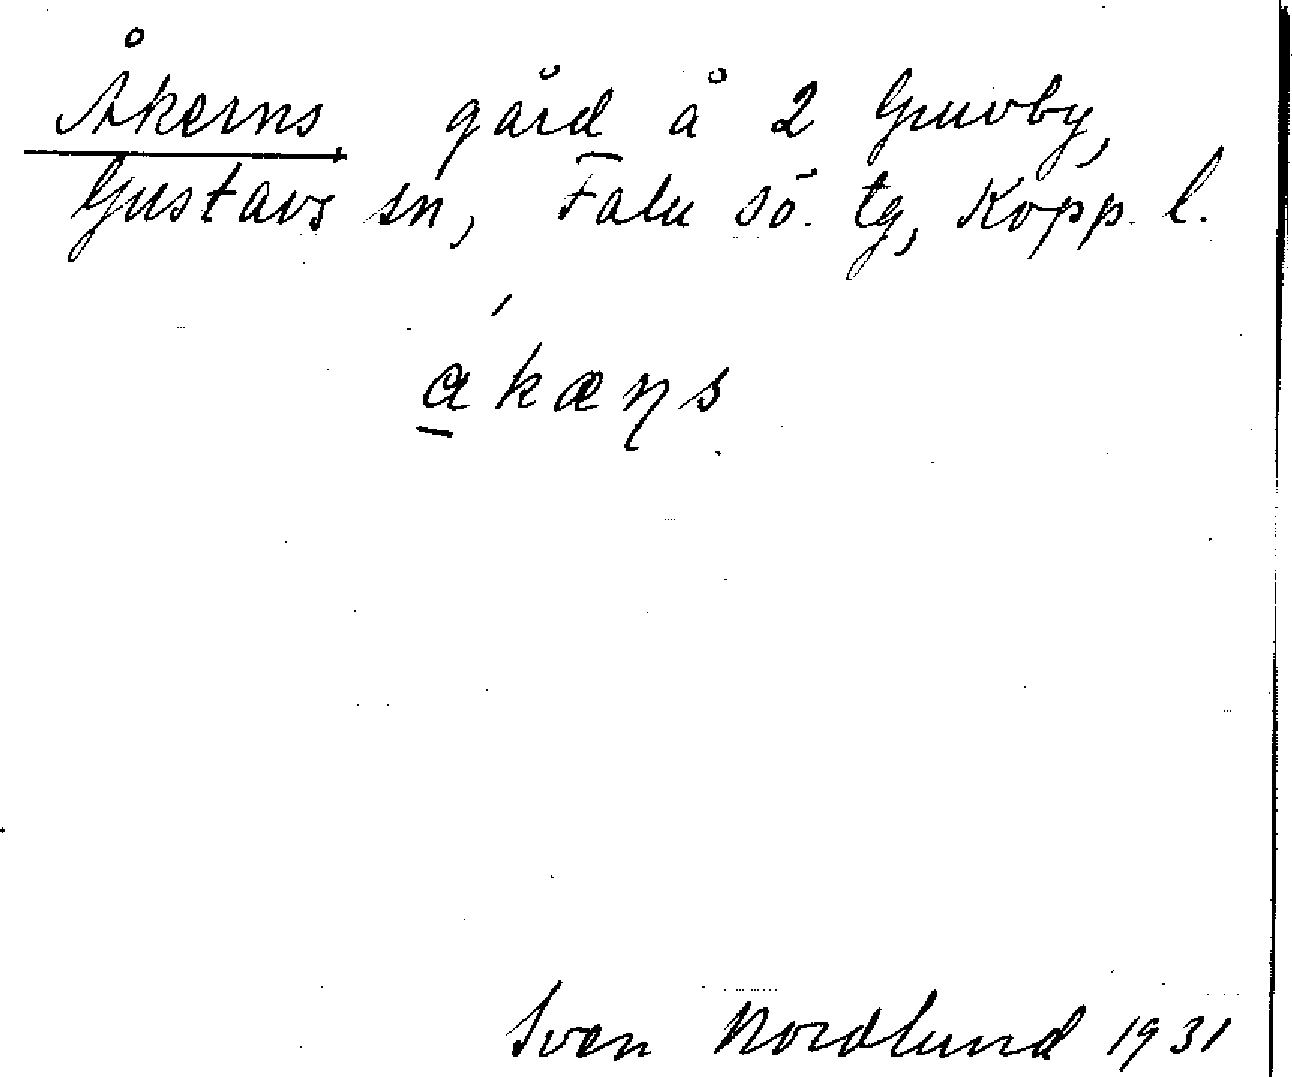 Åkerns gård å 2 Gruvby,
Gustavs sn, Falu sö. tg, Kopp. l.
ákæɳs
Sven Nordlund 1931